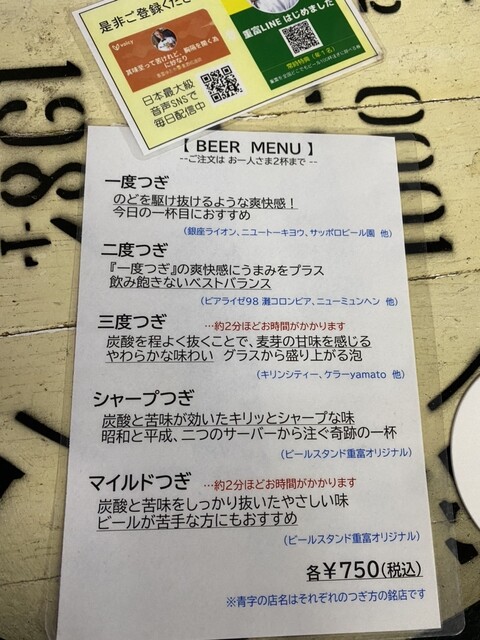 是非ご登録くださ
voicy
重富LINE はじめました
日本最大級
音声SNSで
毎日配信中
【 BEER MENU 】
--ご注文は お一人さま2杯まで --
一度つぎ
のどを駆け抜けるような爽快感！
今日の一杯目におすすめ
（銀座ライオン、ニュートーキヨウ、サッポロビール園 他）
二度つぎ
『一度つぎ』の爽快感にうまみをプラス
飲み飽きないベストバランス
（ピアライゼ98 灘コロンビア、ニューミュンヘン 他）
三度つぎ …約2分ほどお時間がかかります
炭酸を程よく抜くことで、麦芽の甘味を感じる
やわらかな味わい グラスから盛り上がる泡
（キリンシティー、ケラーyamato 他）
シャープつぎ
炭酸と苦味が効いたキリッとシャープな味
昭和と平成、二つのサーバーから注ぐ奇跡の一杯
（ビールスタンド重富オリジナル）
マイルドつぎ …約2分ほどお時間がかかります
炭酸と苦味をしっかり抜いたやさしい味
ビールが苦手な方にもおすすめ
（ビールスタンド重富オリジナル）
各￥750(税込)
※青字の店名はそれぞれのつぎ方の銘店です